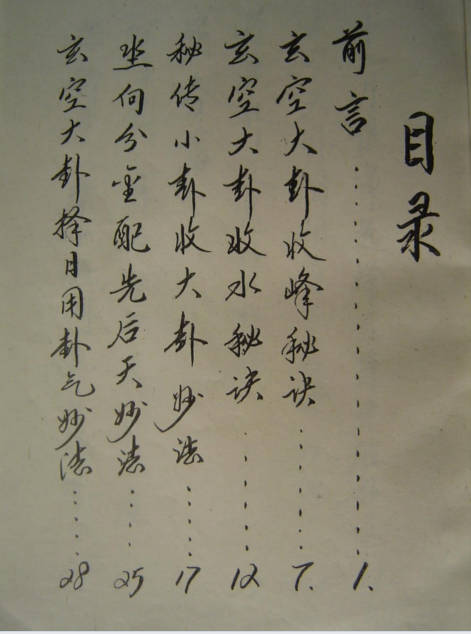 目录
前言..................1.
玄空大卦收峰秘诀.......7.
玄空大卦收水秘诀.......12
秘传小卦收大卦妙法.....17
坐向分金配先后天妙法.....25
玄空大卦择日用卦气妙法......28